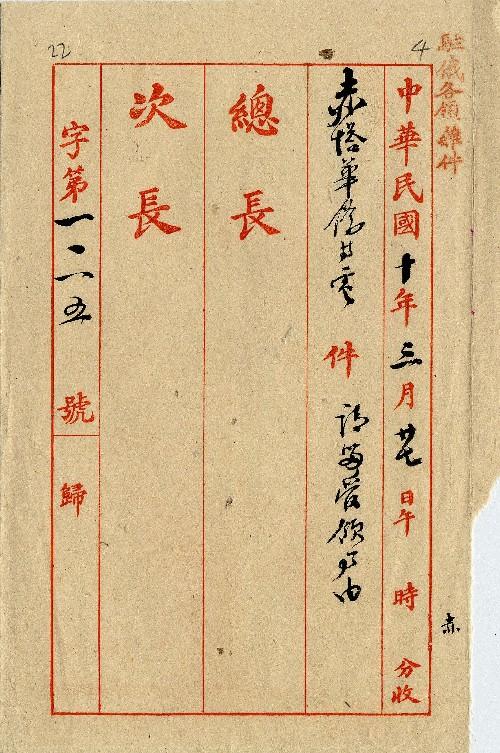 22
4
駐俄各領雜件
中華民國十年三月廿七日午 時 分收
赤塔華僑等電 件 請留管領事由
總長
次長
字第一二五號 歸
赤